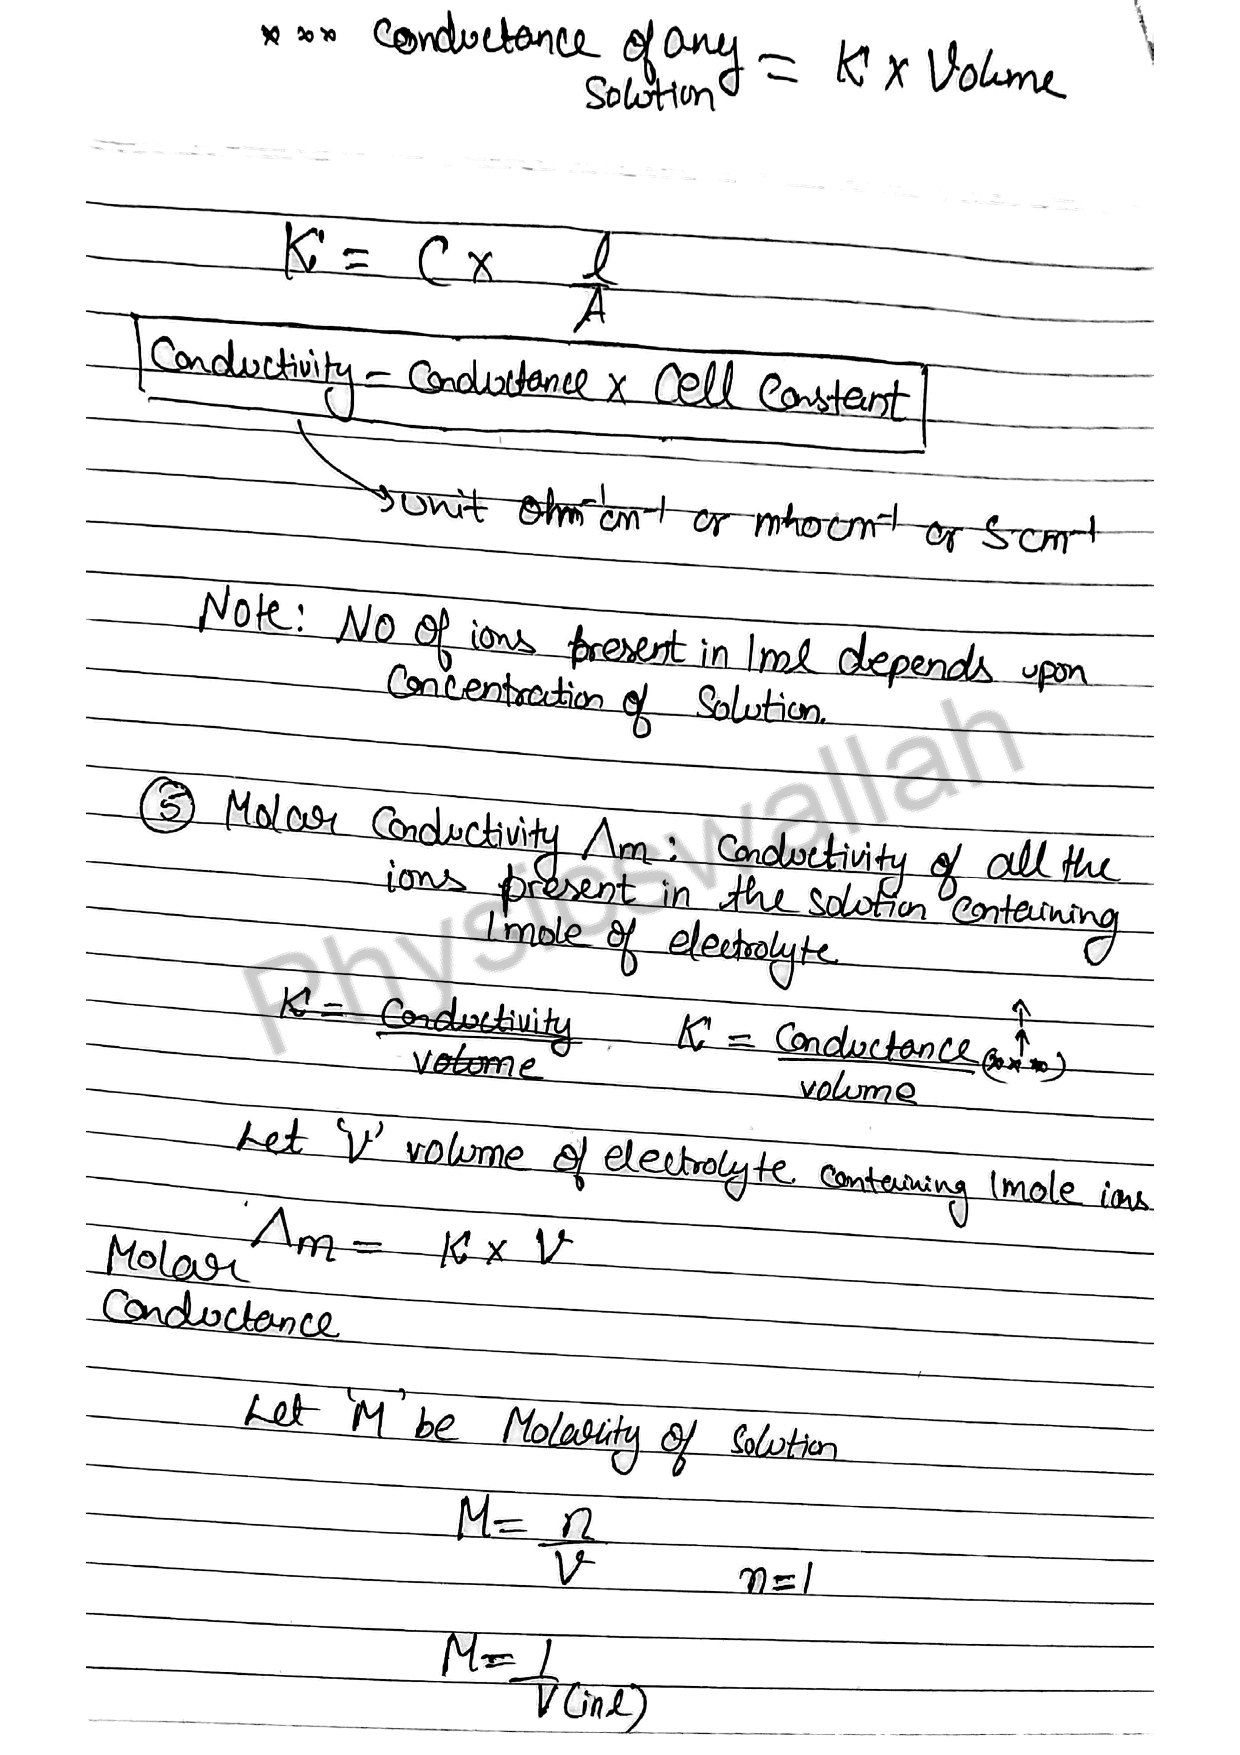 *** Conductance of any = K × Volume
Solution
K = C × l
A
Conductivity = Conductance × Cell Constant
unit Ohm⁻¹cm⁻¹ or mho cm⁻¹ or S cm⁻¹
Note: No of ions present in 1ml depends upon
Concentration of Solution.
⑤ Molar Conductivity Λm: Conductivity of all the
ions present in the solution containing
1mole of electrolyte
K = Conductivity K = Conductance (***)
volume volume
Let 'V' volume of electrolyte containing 1mole ions
Λm = K × V
Molar
Conductance
Let 'M' be Molarity of Solution
M = n
V n=1
M = 1
V (in l)
Physicswallah